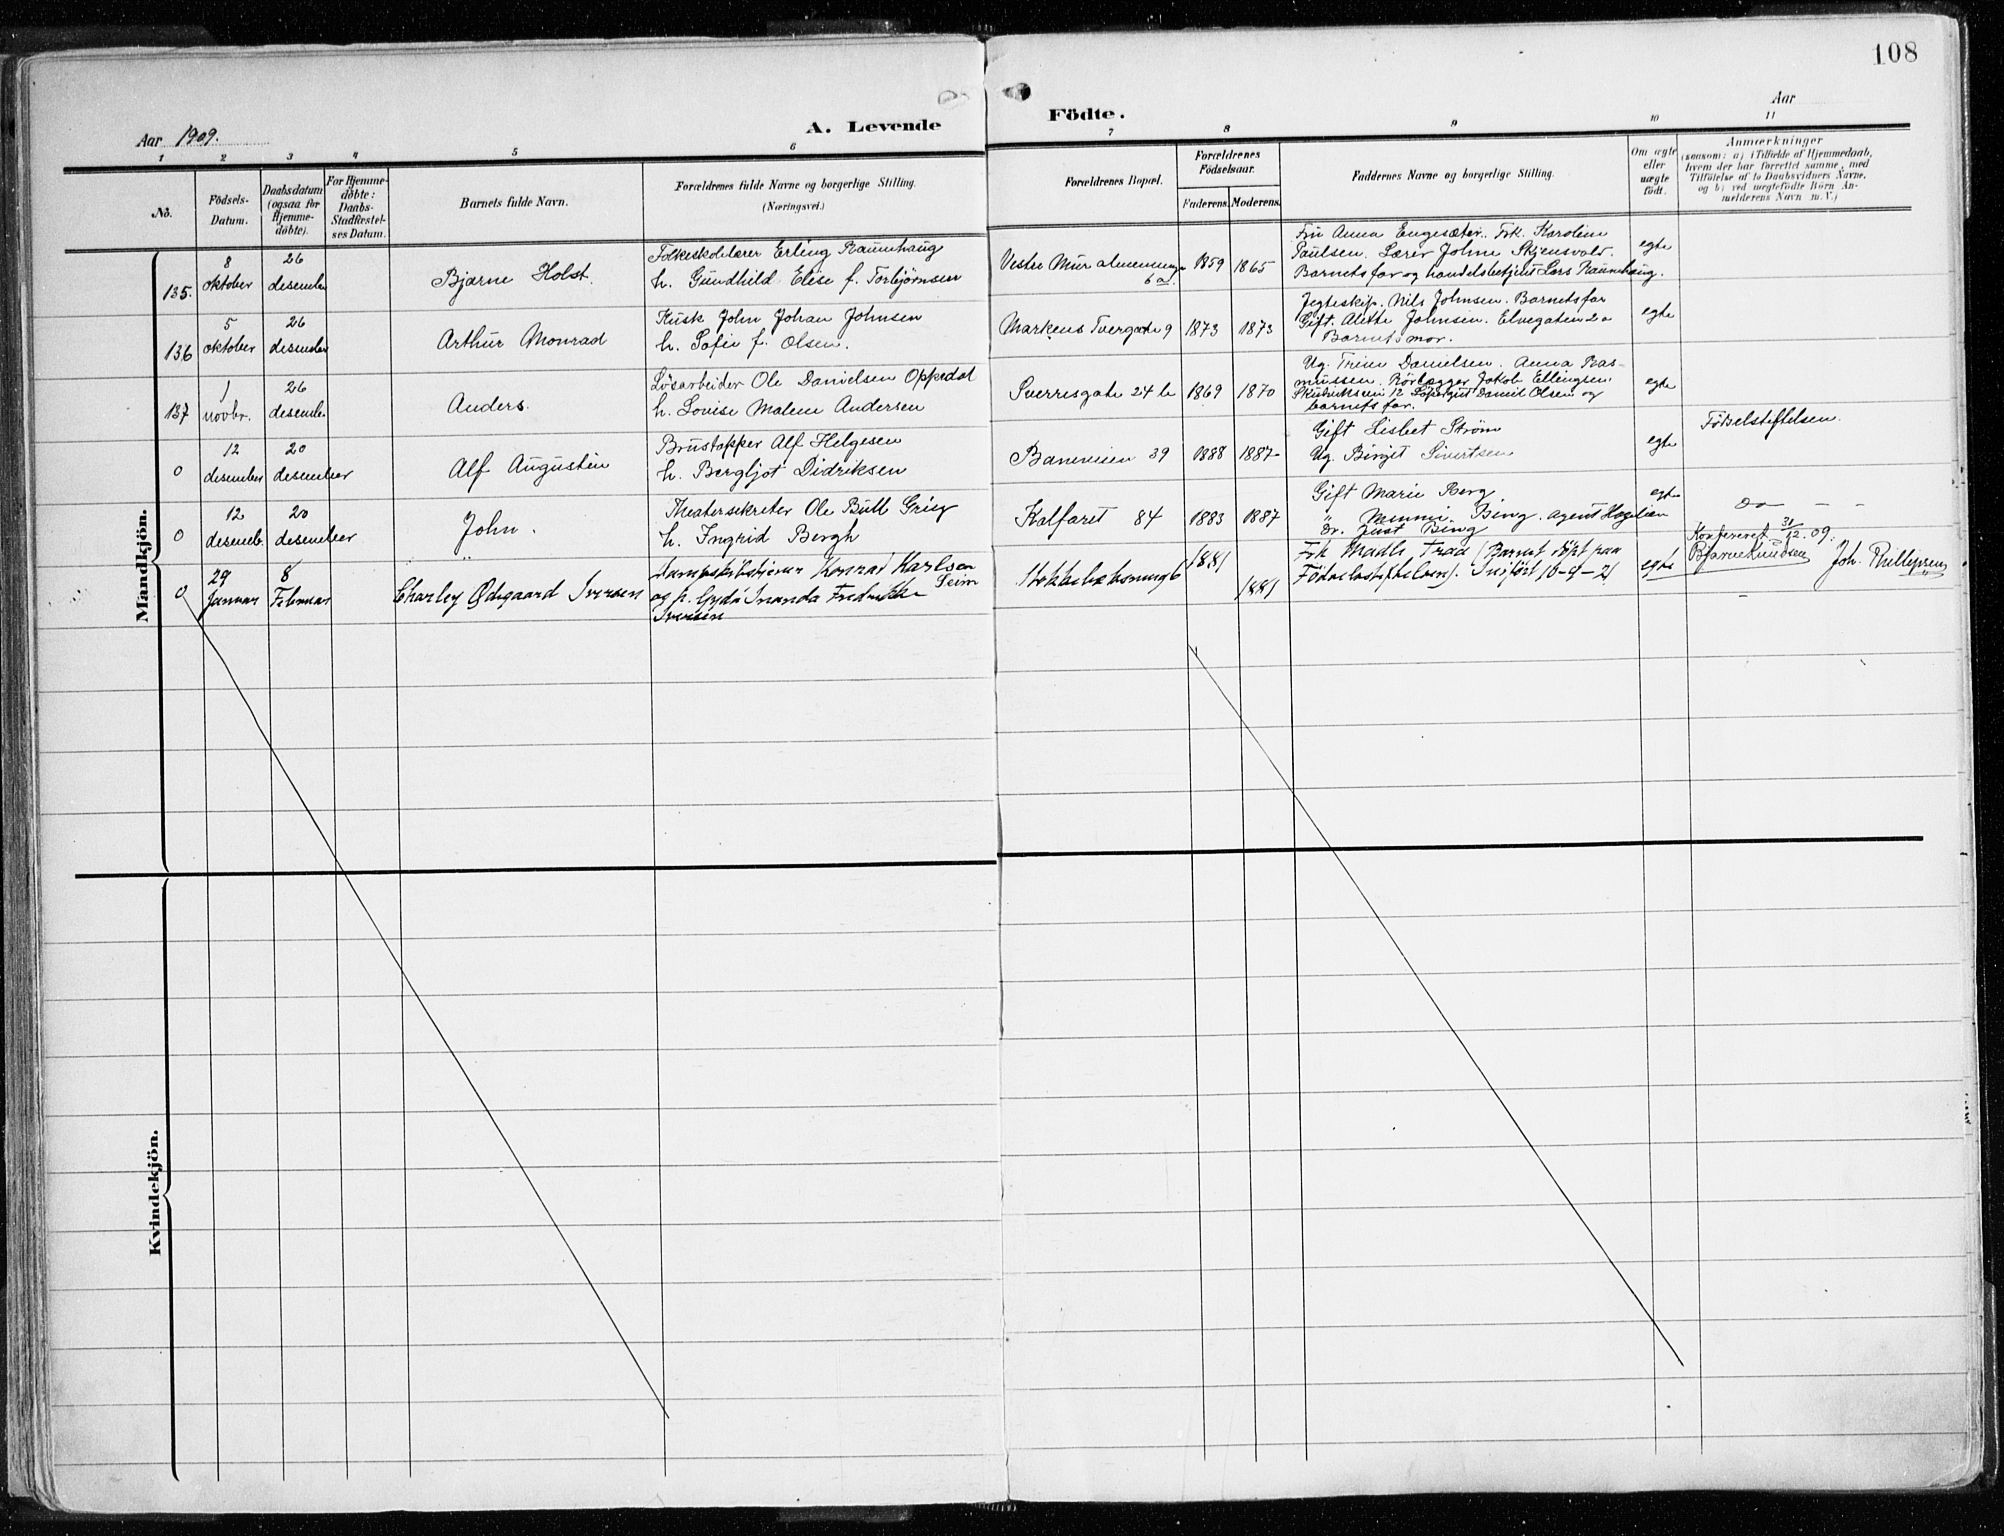 108
Aar 1909.
A. Levende
Födte.
Aar
1 2 3 4 5 6 7 8 9 10 11
No.
Födsels-
Datum.
Daabsdatum
(ogsaa for
Hjemme-
döbte).
For Hjemme-
döbte:
Daabs-
Stadfæstel-
ses Datum.
Barnets fulde Navn.
Forældrenes fulde Navne og borgerlige Stilling.
(Næringsvei.)
Forældrenes Bopæl.
Forældrenes
Födselsaar.
Faderens.
Moderens.
Faddernes Navne og borgerlige Stilling.
Om ægte
eller
uægte
födt.
Anmærkninger
(saasom: a) i Tilfælde af Hjemmedaab,
hvem der har forrettet samme, med
Tilföielse af to Daabsvidners Navne,
og b) ved uægtefödte Börn An-
melderens Navn m. V.)
Mandkjön.
135.
8
oktober
26
desember
Bjarne Holst.
Folkeskolelærer Erling Raunehaug
h. Gundhild Elise f. Torbjørnsen
Vestre Mur almenning
6 a
1859
1865
Fru Anna Engesæter. Frk. Karoline
Paulsen. Lærer Johne Skjensvold.
Barnets far og handelsbetjent Lars Raunehaug.
egte
136
5
oktober
26
desember
Arthur Monrad
Kusk John Johan Johnsen
h. Sofie f. Olsen.
Markens Tvergate 9
1873
1873
Jegteskip. Nils Johnsen. Barnets far
Gift. Alette Johnsen. Elvegaten 20
Barnets mor.
egte
137
1
novbr.
26
desember
Anders.
Løsarbeider Ole Danielsen Oppedal
h. Lovise Malene Andersen
Sverresgate 24 b
1869
1870
Ug. Trine Danielsen. Anna Ras-
mussen. Rörlægger Jakob Ellingsen
12 Löpergut Daniel Olsen og
barnets far.
egte
0
12
desember
20
desember
Alf Augustin
Brustapper Alf Helgesen
h. Bergljot Didriksen
Baneveien 39
1888
1887
Gift Lisbet Strøm
Ug. Birgit Sivertsen
egte
Fødselstiftelsen.
0
12
desemb.
20
desember
John.
Theatersekretær Ole Bull Grieg
h. Ingrid Bergh
Kalfaret 84
1883
1887
Gift Marie Berg.
" Nemmi Bing. agent Hagelien
Dr. Just Bing
egte
do - -
Konfereret 31/12 09.
Bjarne Knudsen
Joh. Phillipsen
0
29
Januar
8
Februar
Charley Ødegaard Iversen
Konrad Karlsen
Seim
og h. Gyda Inanda Fredrikke
Iversen
1881
1881
Frk. Madli Traa (Barnet döpt paa
Födselsstiftelsen). Inført 16-4-21
egte
-
Kvindekjön.